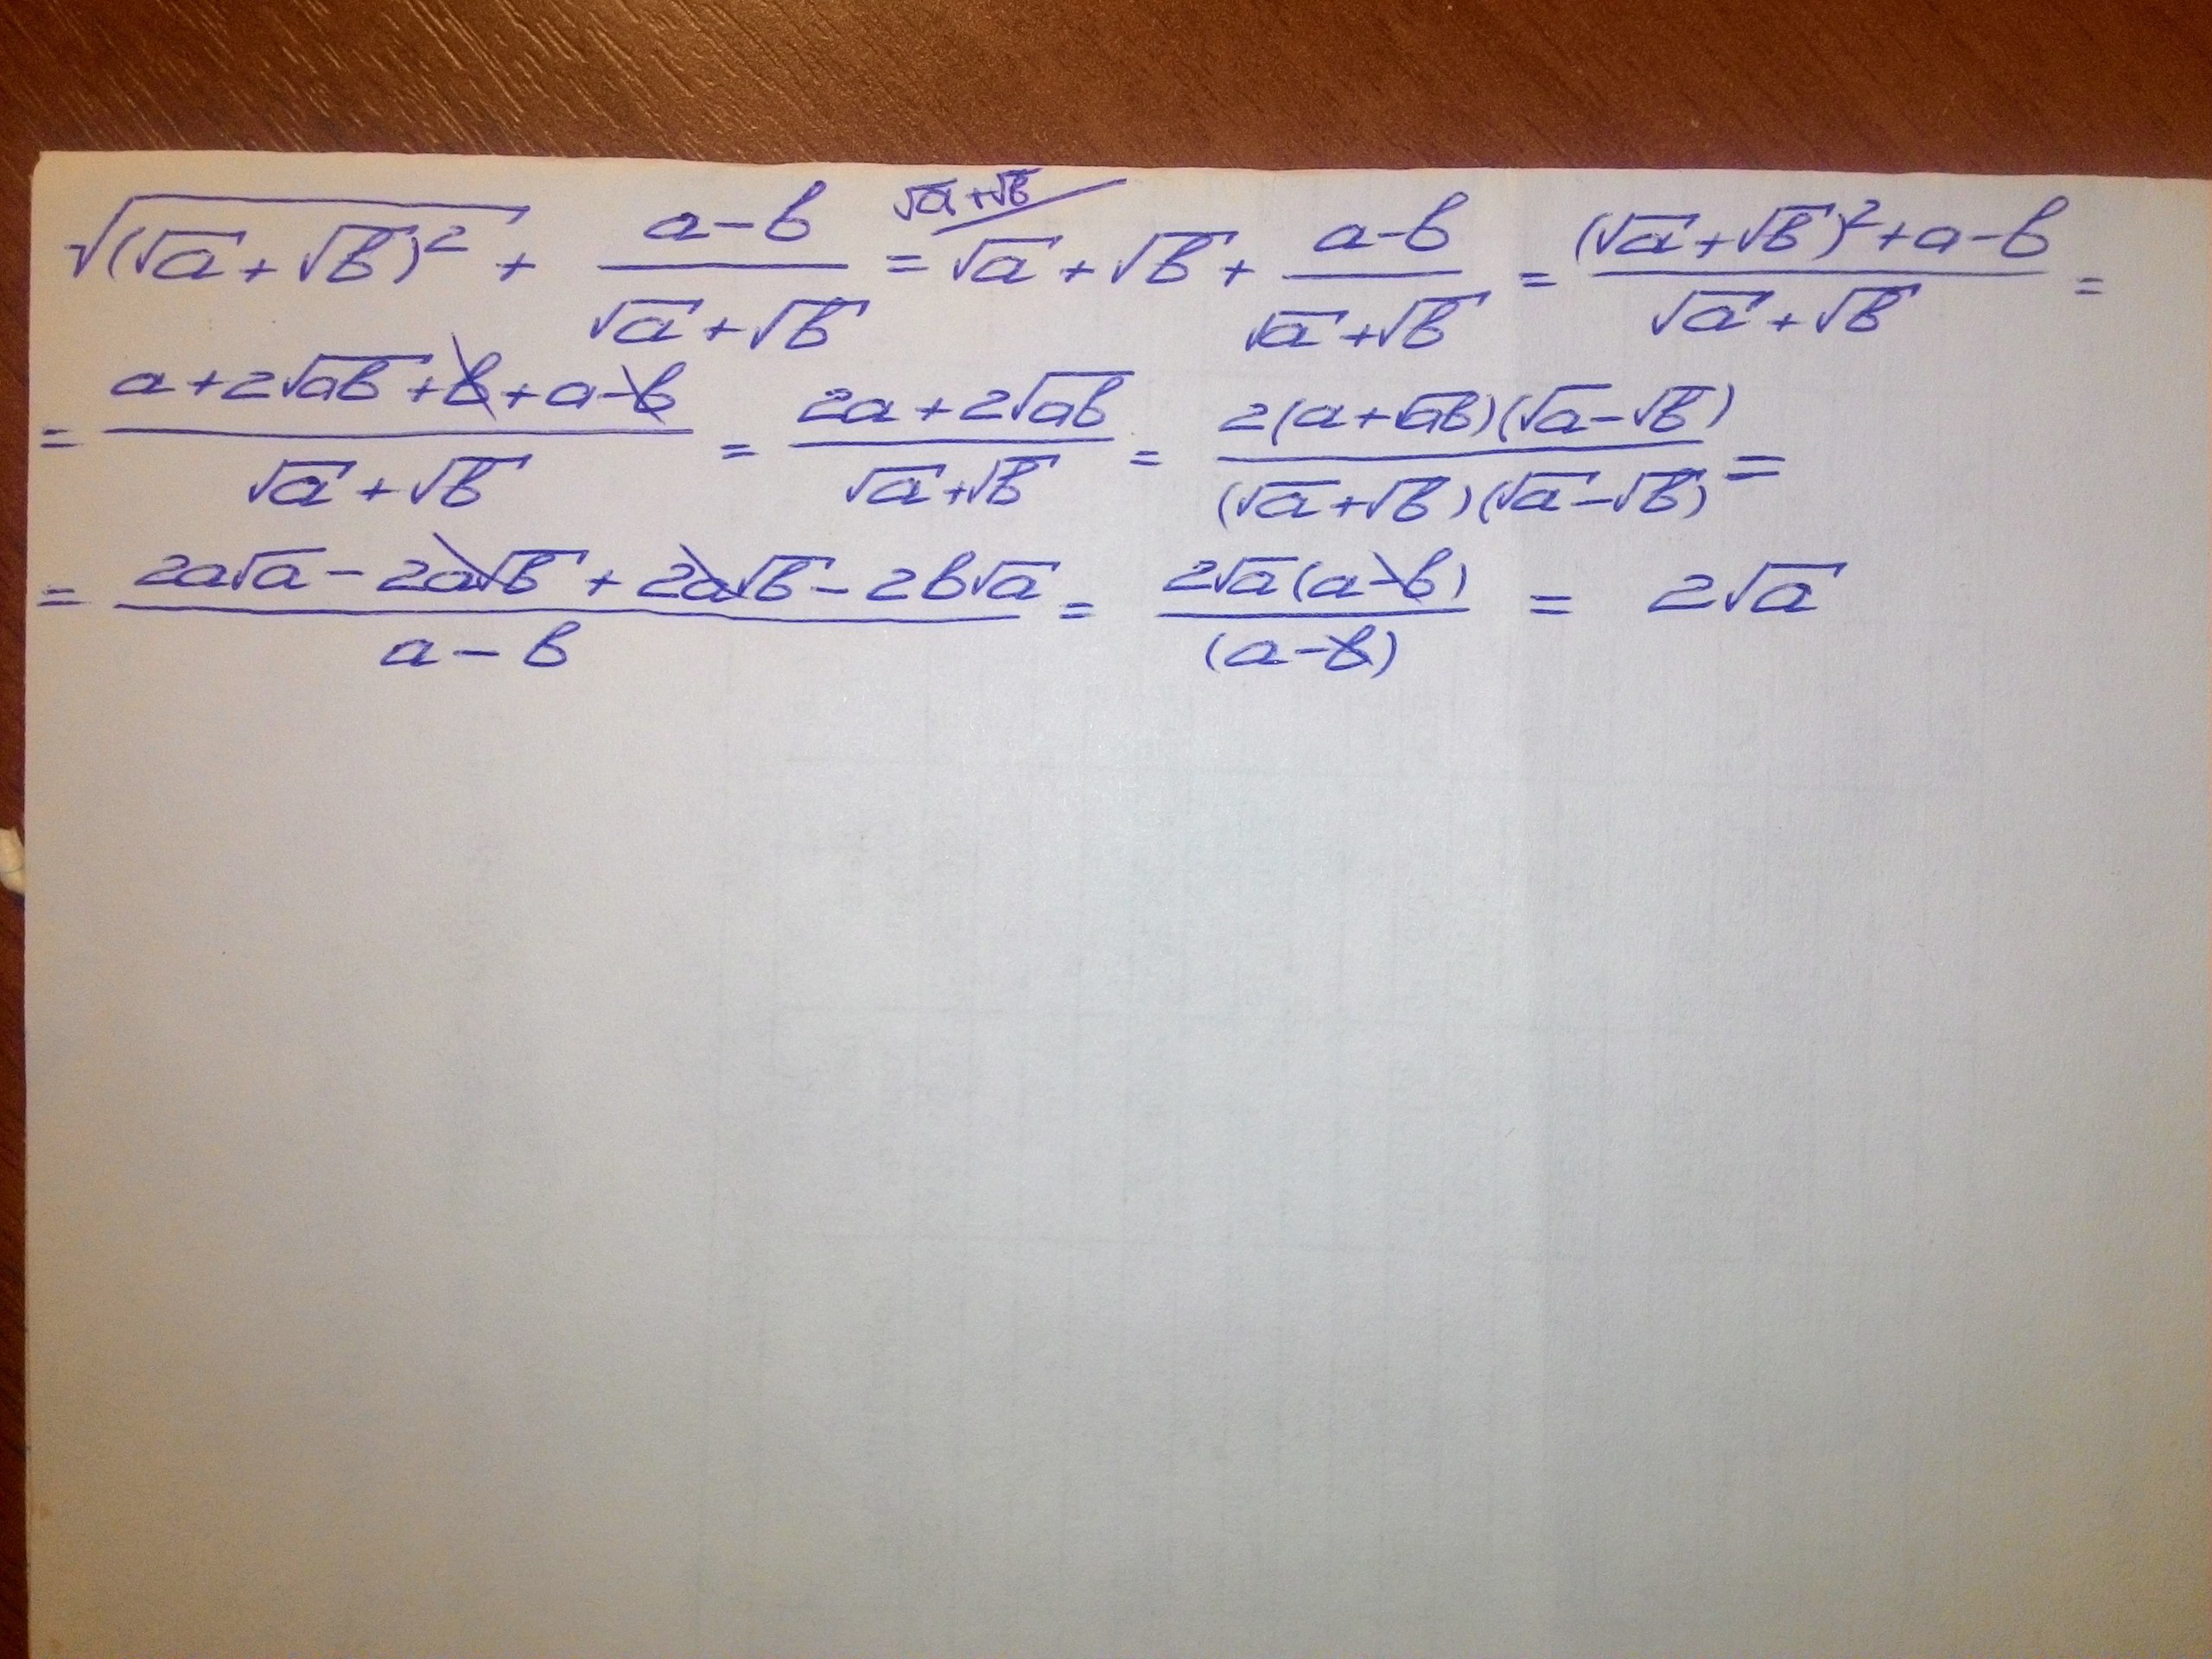 √((√a + √b)²) + (a-b)/(√a + √b) = √a + √b (√a+√b + (a-b)/(√a+√b) = ((√a+√b)²+a-b)/(√a+√b) =
= (a+2√ab+b+a-b)/(√a+√b) = (2a+2√ab)/(√a+√b) = (2(a+√ab)(√a-√b))/((√a+√b)(√a-√b)) =
= (2a√a - 2a√b + 2a√b - 2b√a)/(a-b) = (2√a(a-b))/((a-b)) = 2√a